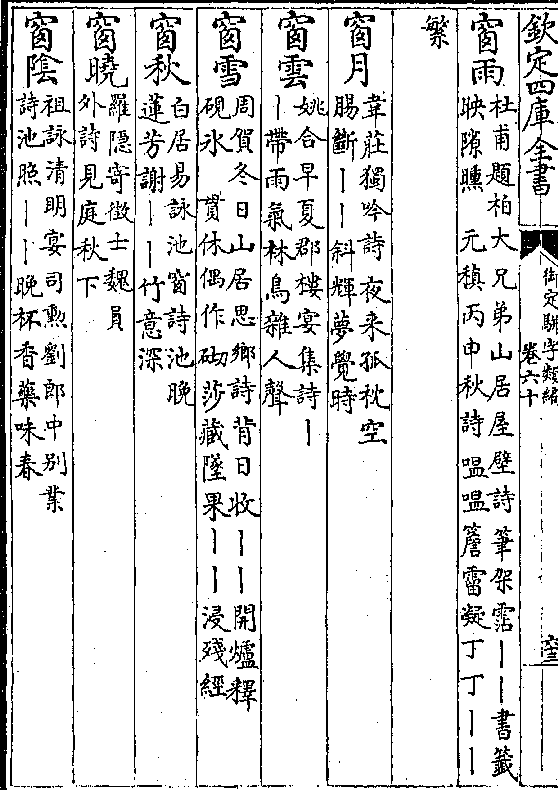 欽定四庫全書
御定駢字類編
卷六十
窗雨
杜甫題柏大兄弟山居屋壁詩筆架霑丨丨書籤
映隙曛 元稹丙申秋詩 嗢嗢簷霤凝丁丁丨丨
繁
窗月
韋莊獨吟詩夜来孤枕空
腸斷丨丨斜輝夢覺時
窗雲
姚合早夏郡樓宴集詩丨
丨帶雨氣林鳥雜人聲
窗雪
周賀冬日山居思鄉詩背日收丨丨開爐釋
硯氷 貫休偶作砌莎藏墜果丨丨浸殘經
窗秋
白居易詠池窗詩池晚
蓮芳謝丨丨竹意深
窗曉
羅隱寄徵士魏員
外詩見庭秋下
窗陰
祖詠清明宴司勲劉郎中別業
詩池照丨丨晚杯香藥味春